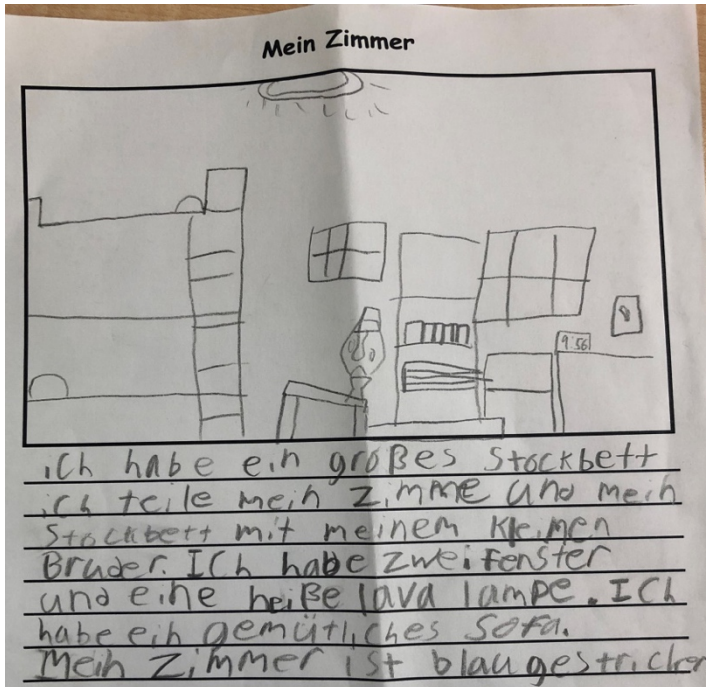 Mein Zimmer
9:56
ich habe ein großes Stockbett
ich teile mein Zimme und mein
Stockbett mit meinem kleinen
Bruder. Ich habe zwei fenster
und eine heiße lava lampe. Ich
habe ein gemütliches Sofa.
Mein Zimmer ist blau gestrichen